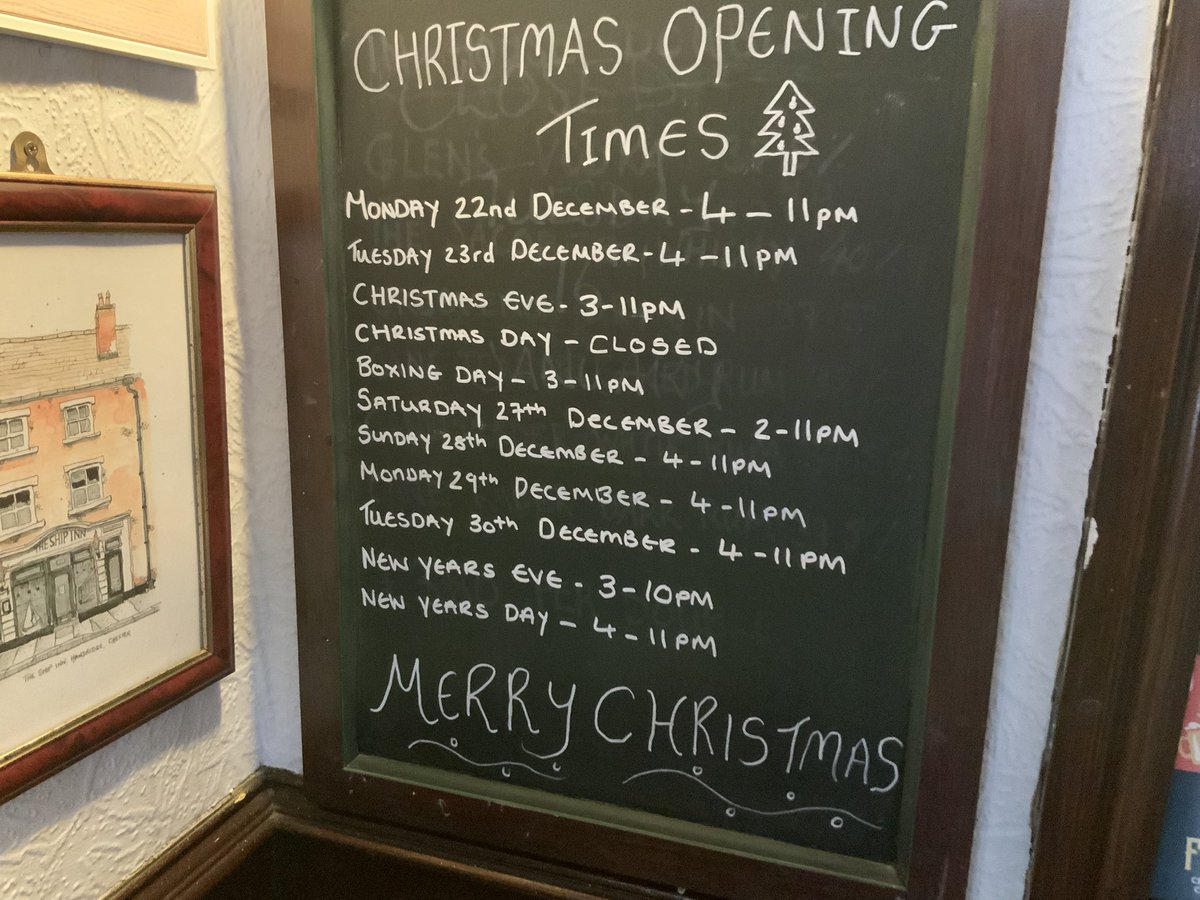 CHRISTMAS OPENING
TIMES
MONDAY 22nd DECEMBER - 4 - 11PM
TUESDAY 23rd DECEMBER - 4 - 11PM
CHRISTMAS EVE - 3-11PM
CHRISTMAS DAY - CLOSED
BOXING DAY - 3-11PM
SATURDAY 27th DECEMBER - 2-11PM
SUNDAY 28th DECEMBER - 4-11PM
MONDAY 29th DECEMBER - 4-11PM
TUESDAY 30th DECEMBER - 4-11PM
NEW YEARS EVE - 3-10PM
NEW YEARS DAY - 4-11PM
MERRY CHRISTMAS
THE SHIP INN
THE SHIP INN, HANDBRIDGE, CHESTER